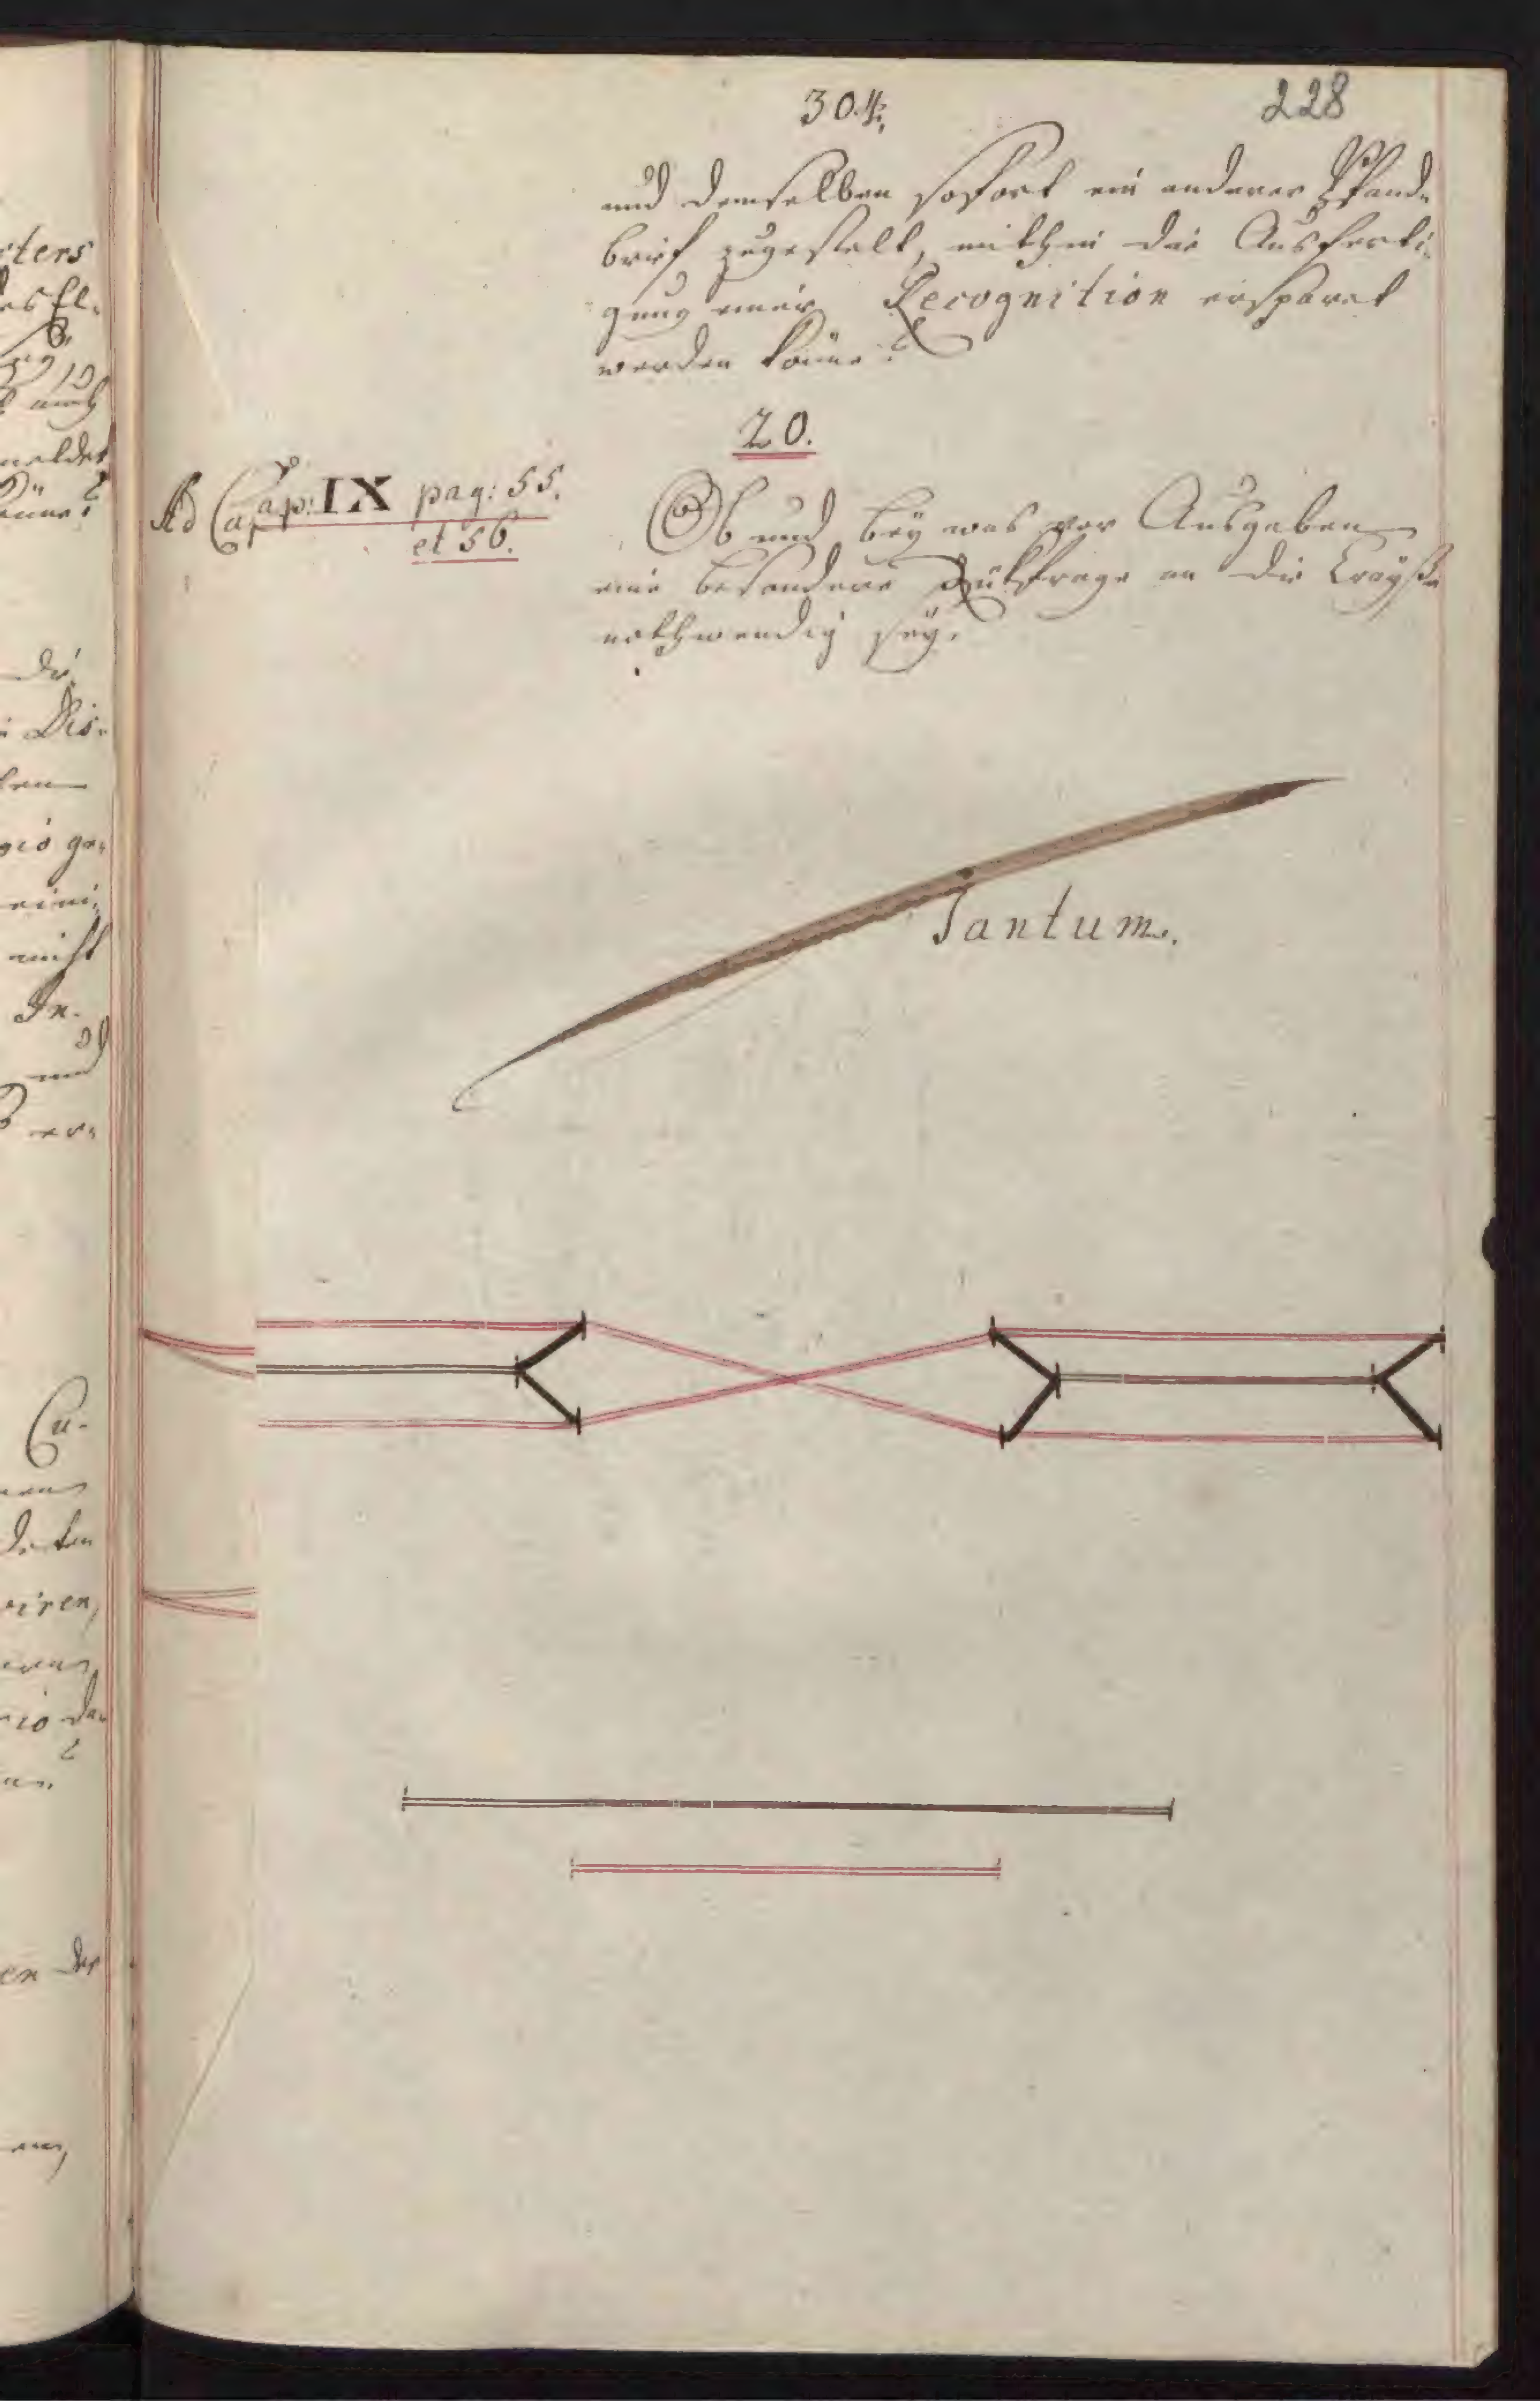 304. 228
und demselben sofort ein anderer Pfand-
brief zugestelt, mithin die Ausferti-
gung einer Recognition ersparet
werden könne?
20.
Ad Cap: IX pag: 55.
et 56.
Ob und bey was vor Ausgaben
eine besondere Rükfrage an die Crayße
nothwendig sey.
Tantum.